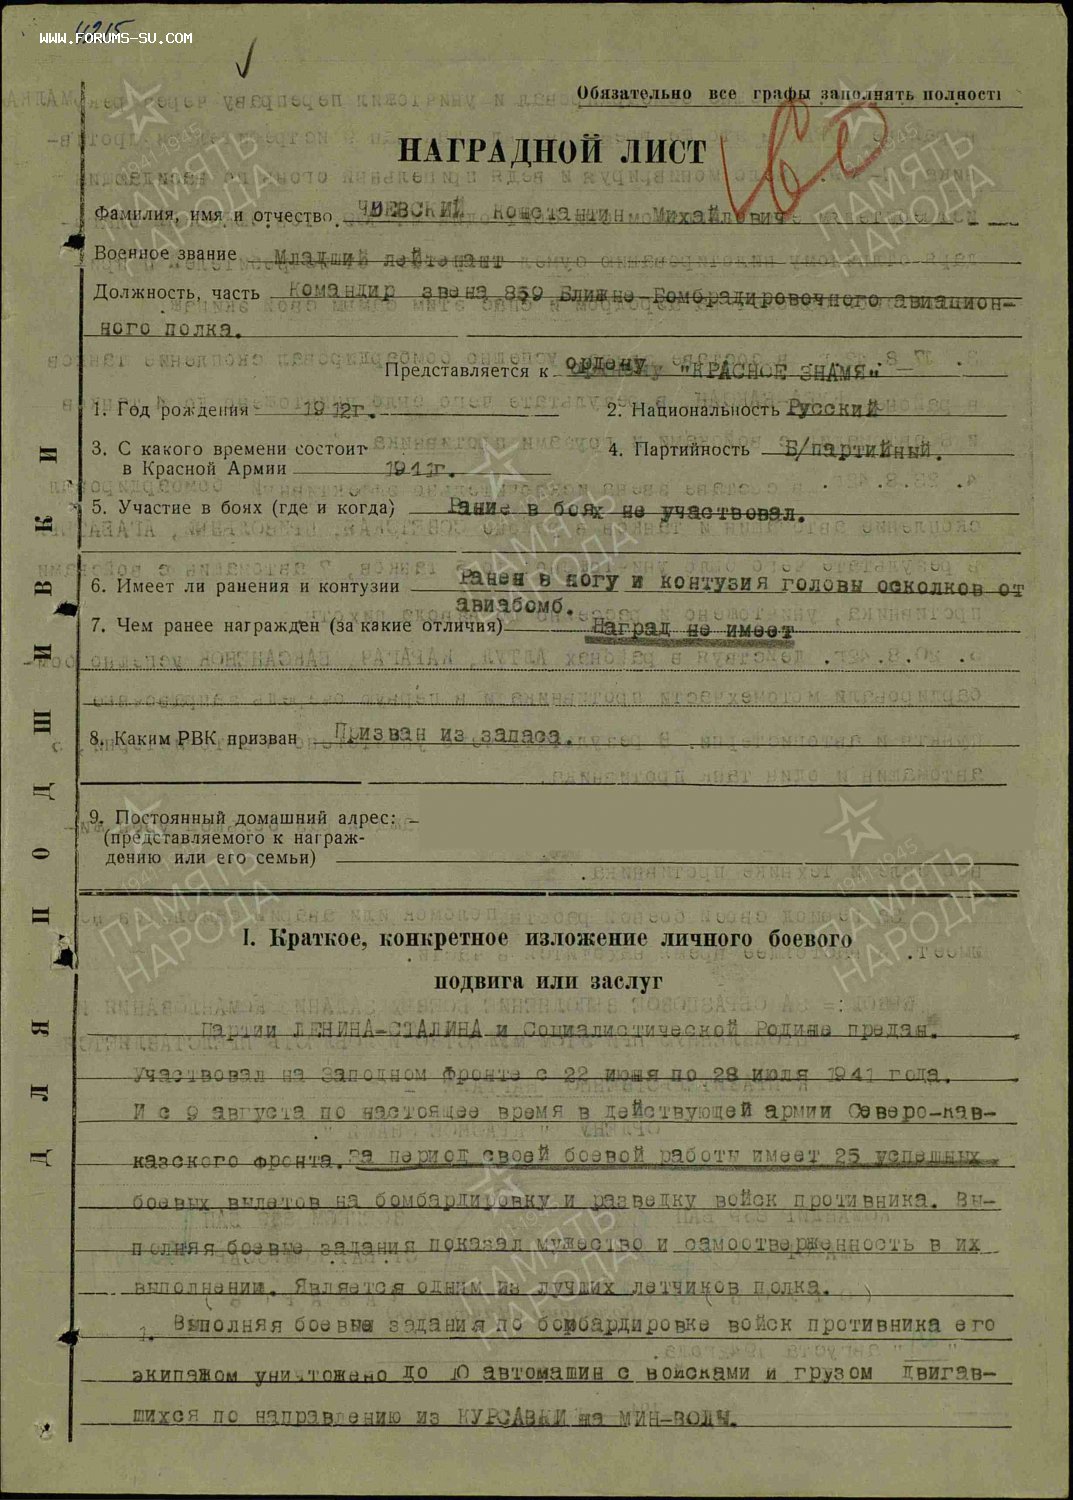 4215
WWW.FORUMS-SU.COM
Обязательно все графы заполнять полност
НАГРАДНОЙ ЛИСТ
Фамилия, имя и отчество Константин Михайлович
Военное звание Младший лейтенант
Должность, часть Командир звена 859 Ближне-Бомбрадировочного авиацион-
ного полка.
Представляется к ордену "КРАСНОЕ ЗНАМЯ"
1. Год рождения 1912г. 2. Национальность Русский
3. С какого времени состоит 4. Партийность Б/партийный.
в Красной Армии 1941г.
5. Участие в боях (где и когда) Ранние в боях не участвовал.
6. Имеет ли ранения и контузии Ранен в ногу и контузия головы осколков от
авиабомб.
7. Чем ранее награжден (за какие отличия) Наград не имеет
8. Каким РВК призван Призван из запаса.
9. Постоянный домашний адрес: –
(представляемого к награж-
дению или его семьи)
ДЛЯ ПОДШИВКИ
I. Краткое, конкретное изложение личного боевого
подвига или заслуг
Партии ЛЕНИНА-СТАЛИНА и Социалистической Родине предан.
Участвовал на Западном Фронте с 22 июня по 28 июля 1941 года.
И с 9 августа по настоящее время в действующей армии Северо-кав-
казского фронта. За период своей боевой работы имеет 25 успешных
боевых вылетов на бомбардировку и разведку войск противника. Вы-
полняя боевые задания показал мужество и самоотверженность в их
выполнении. Является одним из лучших летчиков полка.
1. Выполняя боевые задания по бомбардировке войск противника его
экипажом уничтожено до 10 автомашин с войсками и грузом двигав-
шихся по направлению из КУРСАВКИ на МИН-ВОДЫ.
ПАМЯТЬ НАРОДА
1941-1945